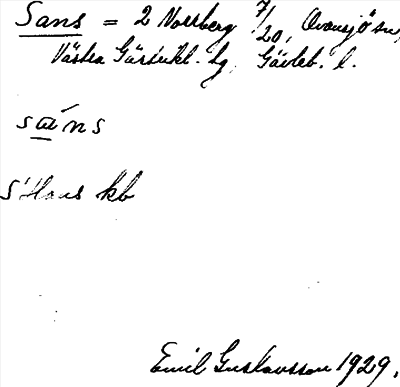 Sans = 2 Norrberg 7/20, Ovansjö sn,
Västra Gästrikl. tg, Gävleb. l.
sa´ns
S'Hans kb
Emil Gustavsson 1929.